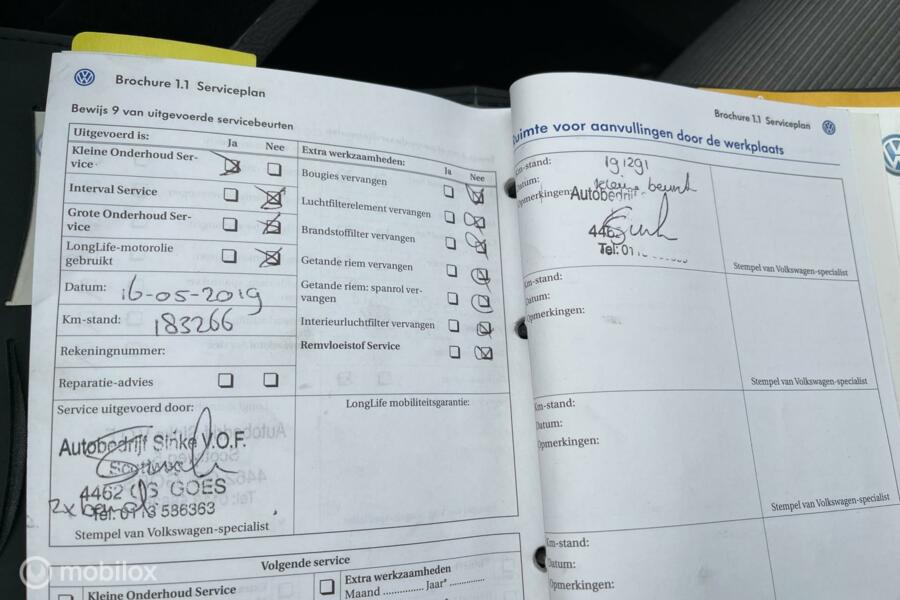 Brochure 1.1 Serviceplan
Bewijs 9 van uitgevoerde servicebeurten
Uitgevoerd is: Ja Nee
Kleine Onderhoud Ser-
vice
Interval Service
Grote Onderhoud Ser-
vice
LongLife-motorolie
gebruikt
Datum: 16-05-2019
Km-stand: 183266
Rekeningnummer:
Reparatie-advies
Service uitgevoerd door:
Autobedrijf Sinke V.O.F.
4462 GOES
2x
Tel: 0113 586363
Stempel van Volkswagen-specialist
Extra werkzaamheden: Ja Nee
Bougies vervangen
Luchtfilterelement vervangen
Brandstoffilter vervangen
Getande riem vervangen
Getande riem: spanrol ver-
vangen
Interieurluchtfilter vervangen
Remvloeistof Service
LongLife mobiliteitsgarantie:
Volgende service
Kleine Onderhoud Service
Extra werkzaamheden
Maand .............. Jaar* ..............
Brochure 1.1 Serviceplan
Ruimte voor aanvullingen door de werkplaats
Km-stand: 191291
Datum: kleine beurt
Opmerkingen: Autobedrijf
446
Tel: 01
Stempel van Volkswagen-specialist
Km-stand:
Datum:
Opmerkingen:
Stempel van Volkswagen-specialist
Km-stand:
Datum:
Opmerkingen:
Stempel van Volkswagen-specialist
Km-stand:
Datum:
Opmerkingen:
mobilox